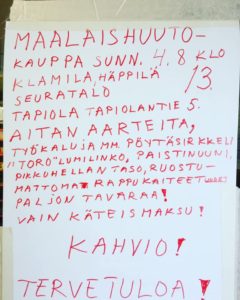 MAALAISHUUTO-
KAUPPA SUNN. 4.8 KLO
KLAMILA, HÄPPILÄ 13.
SEURATALO
TAPIOLA TAPIOLANTIE 5.
AITAN AARTEITA,
TYÖKALUJA MM. PÖYTÄSIRKKELI
"TORO" LUMILINKO, PAISTINUUNI,
PIKKUHELLAN TASO, RUOSTU-
MATTOMAT RAPPUKAITEET
PALJON TAVARAA!
VAIN KÄTEISMAKSU!
KAHVIO!
TERVETULOA!